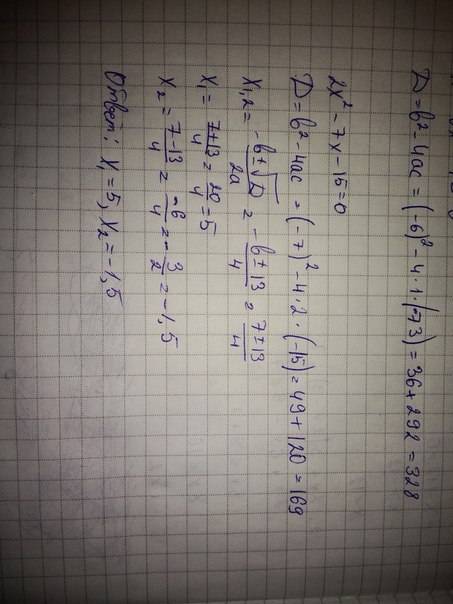 D = b² - 4ac = (-6)² - 4·1·(-73) = 36 + 292 = 328
2x² - 7x - 15 = 0
D = b² - 4ac = (-7)² - 4·2·(-15) = 49 + 120 = 169
x₁,₂ = (-b ± √D)/2a = (-b ± 13)/4 = (7 ± 13)/4
x₁ = (7+13)/4 = 20/4 = 5
x₂ = (7-13)/4 = -6/4 = -3/2 = -1,5
Ответ: x₁ = 5, x₂ = -1,5